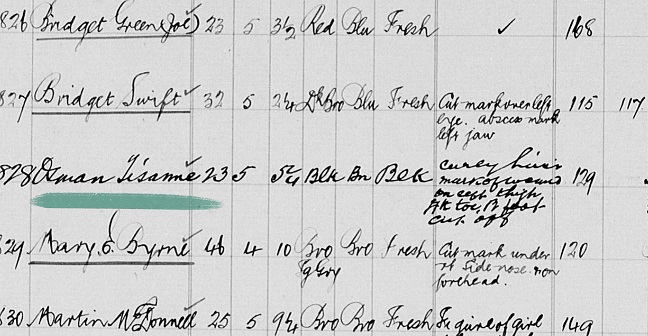 826 Bridget Green (Joe) 23 5 3½ Red Blu Fresh ✓ 168
827 Bridget Swift 32 5 2¼ Dk Bro Blu Fresh Cut mark over left 115 117
eye. abscess mark
left jaw
828 Osman Tisanne 23 5 5¼ Blk Bn Blk curley hair 129
mark of wound
on left thigh
toe. foot
cut off
829 Mary Byrne 46 4 10 Bro Bro Fresh Cut mark under 120
Tg Gry rt side nose. non
forehead.
830 Martin McDonnell 25 5 9½ Bro Bro Fresh figure of girl 149